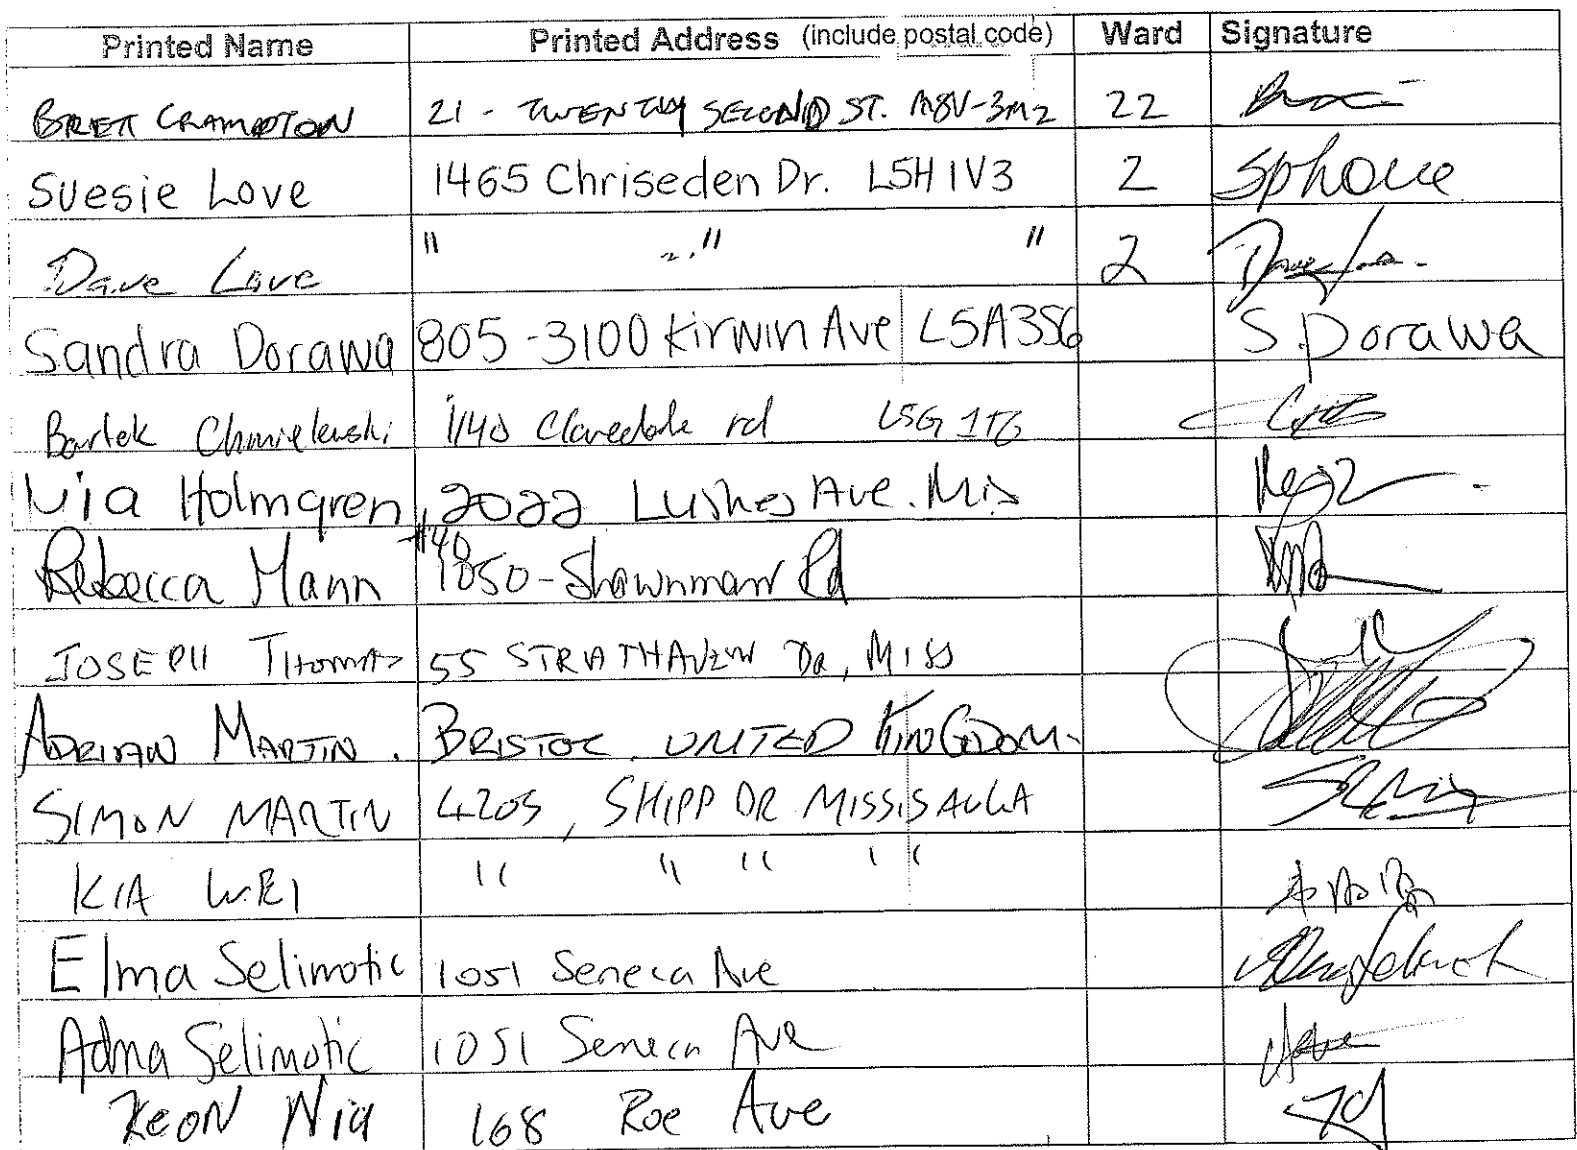 Printed Name Printed Address (include postal code) Ward Signature
BRETT CRAMPTON 21 - TWENTY SECOND ST. M8V-3M2 22
Suesie Love 1465 Chriseden Dr. L5H 1V3 2 Sphove
Dave Love " " " 2
Sandra Dorawa 805-3100 Kirwin Ave L5A3S6 S. Dorawa
Bartek Chmielewski 1140 Clavedale rd L5G 1T6
Holmgren 2022 Lushes Ave. Mis
Rebecca Mann #40 1050-Shawnmarr Rd
JOSEPH Thomas 55 STRATHAVEN DR, MISS
ADRIAN MARTIN. BRISTOL UNITED KINGDOM.
SIMON MARTIN 4205, SHIPP DR MISSISAUGA
KIA WEI " " " "
Elma Selimotic 1051 Seneca Ave
Adna Selimotic 1051 Seneca Ave
Keon Nia 168 Roe Ave